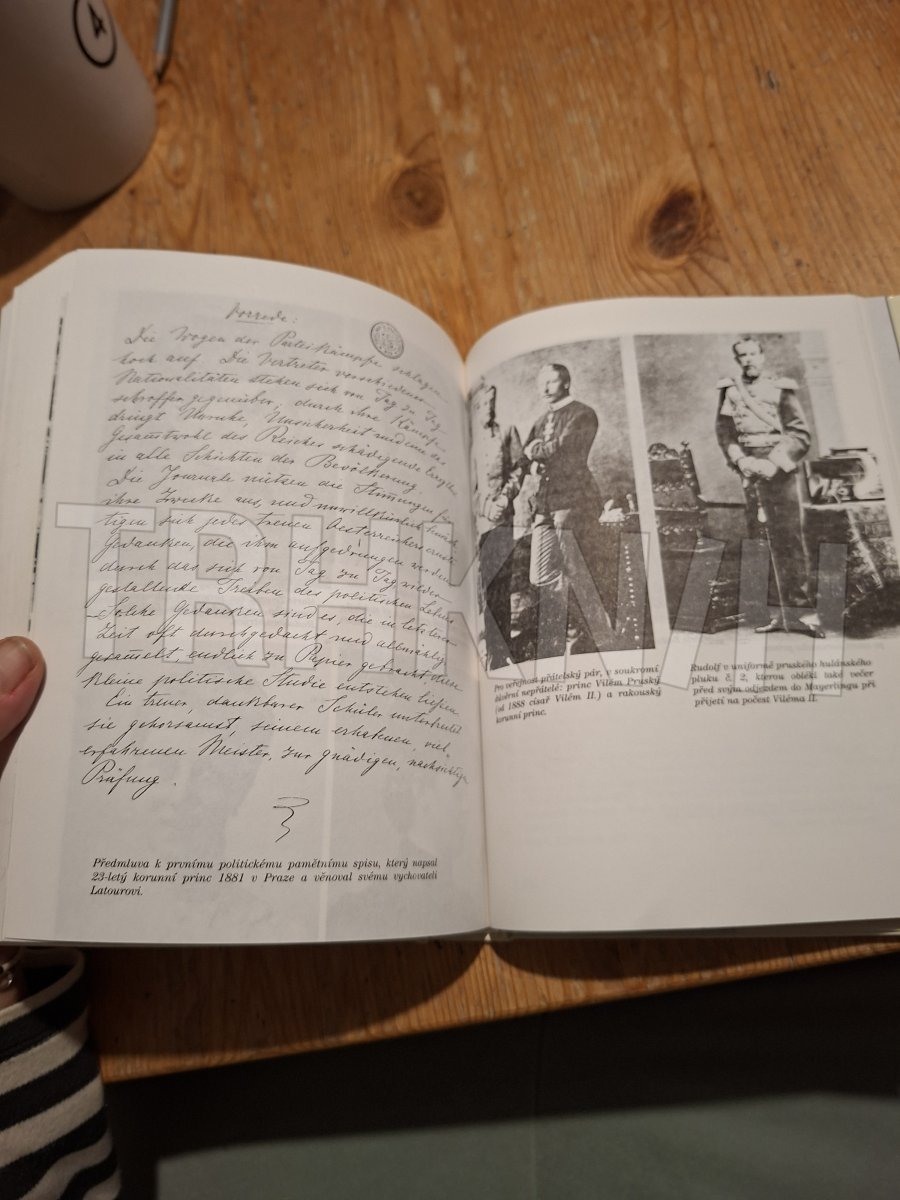 4
Vorrede:
Die Wogen der Parteikämpfe schlagen
hoch auf. Die Vertreter verschiedener
Nationalitäten stehen sich von Tag zu Tag
schroffer gegenüber, durch ihre Kämpfe
dringt Unruhe, Unsicherheit und eine das
Gesamtwohl des Reiches schädigende
in alle Schichten der Bevölkerung.
Die Journale nützen die Stimmungen für
ihre Zwecke aus, und unwillkürlich
tigen sich jedes treuen Oesterreichers ernste
Gedanken, die ihm aufgedrungen werden
durch das sich von Tag zu Tag
gestaltende Treiben des politischen Lebens
Solche Gedanken sind es, die in letzterer
Zeit oft durchgedacht und allmählig
gesammelt, endlich zu Papier gebracht, diese
kleine politische Studie entstehen ließen.
Ein treuer, dankbarer Schüler unterbreitet
sie gehorsamst, seinem erhabenen, viel-
erfahrenen Meister, zur gnädigen, nachsichtigen
Prüfung.
Předmluva k prvnímu politickému pamětnímu spisu, který napsal
23-letý korunní princ 1881 v Praze a věnoval svému vychovateli
Latourovi.
Pro veřejnost přátelský pár, v soukromí
nepřátelé: princ Vilém Pruský
(od 1888 císař Vilém II.) a rakouský
korunní princ.
Rudolf v uniformě pruského hulánského
pluku č. 2, kterou oblékl také večer
před svým odjezdem do Mayerlingu při
přijetí na počest Viléma II.
TRHKNIH